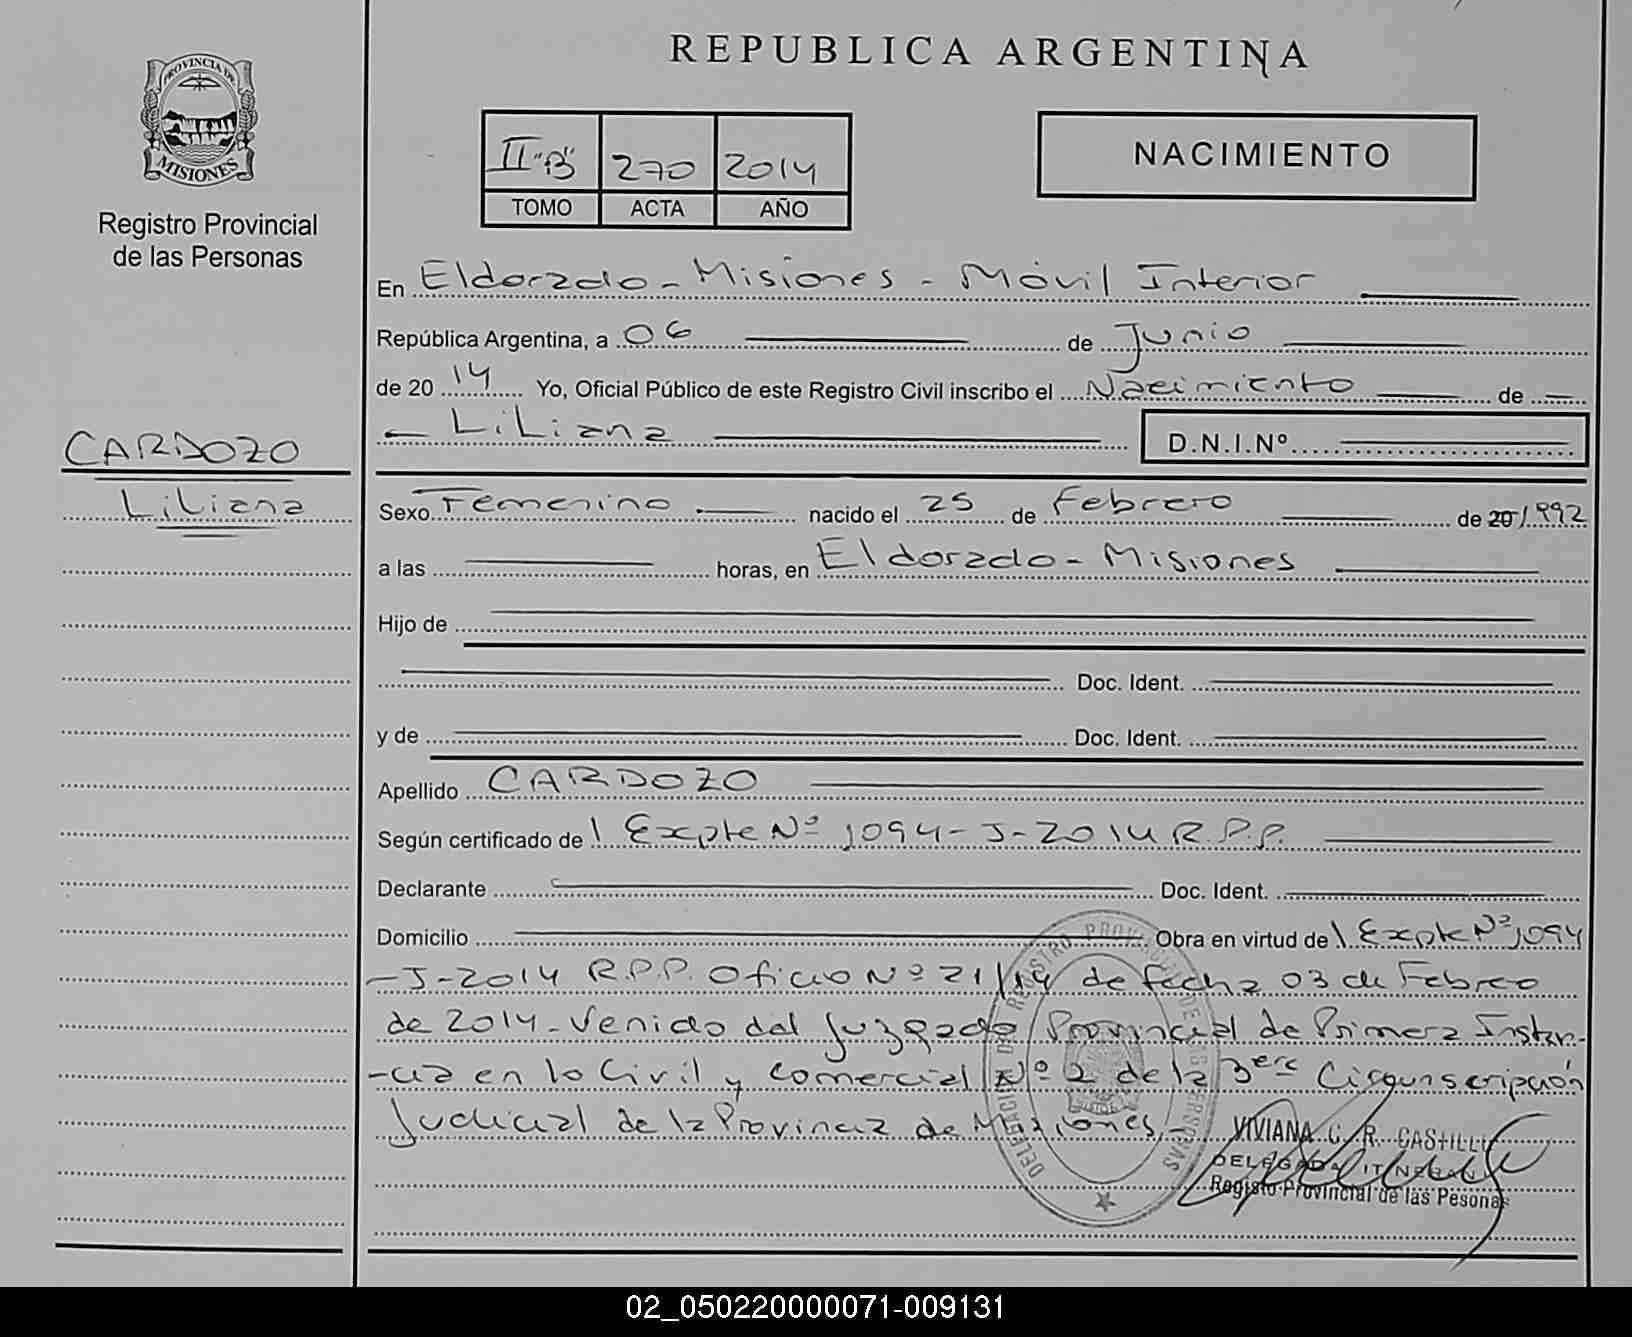 REPUBLICA ARGENTINA
PROVINCIA DE
MISIONES
Registro Provincial
de las Personas
II "B" 270 2014
TOMO ACTA AÑO
NACIMIENTO
En Eldorado - Misiones - Móvil Interior
República Argentina, a 06 de Junio
de 20 14 Yo, Oficial Público de este Registro Civil inscribo el Nacimiento de
Liliana D.N.I.Nº
CARDOZO
Liliana
Sexo Femenino nacido el 25 de Febrero de 20 1992
a las horas, en Eldorado - Misiones
Hijo de
Doc. Ident.
y de Doc. Ident.
Apellido CARDOZO
Según certificado de \ Expte Nº 1094-J-2014 R.P.P.
Declarante Doc. Ident.
Domicilio Obra en virtud de \ Expte Nº 1094
-J-2014 R.P.P. Oficio Nº 21/14 de fecha 03 de Febreo
de 2014 - Venido del Juzgado Provincial de Primera Instan-
-cia en lo Civil y Comercial Nº 2 de la 3era Circunscripción
Judicial de la Provincia de Misiones.-
VIVIANA C. R. CASTILLO
DELEGADA ITINERANTE
Registo Provincial de las Pesonas
02_050220000071-009131